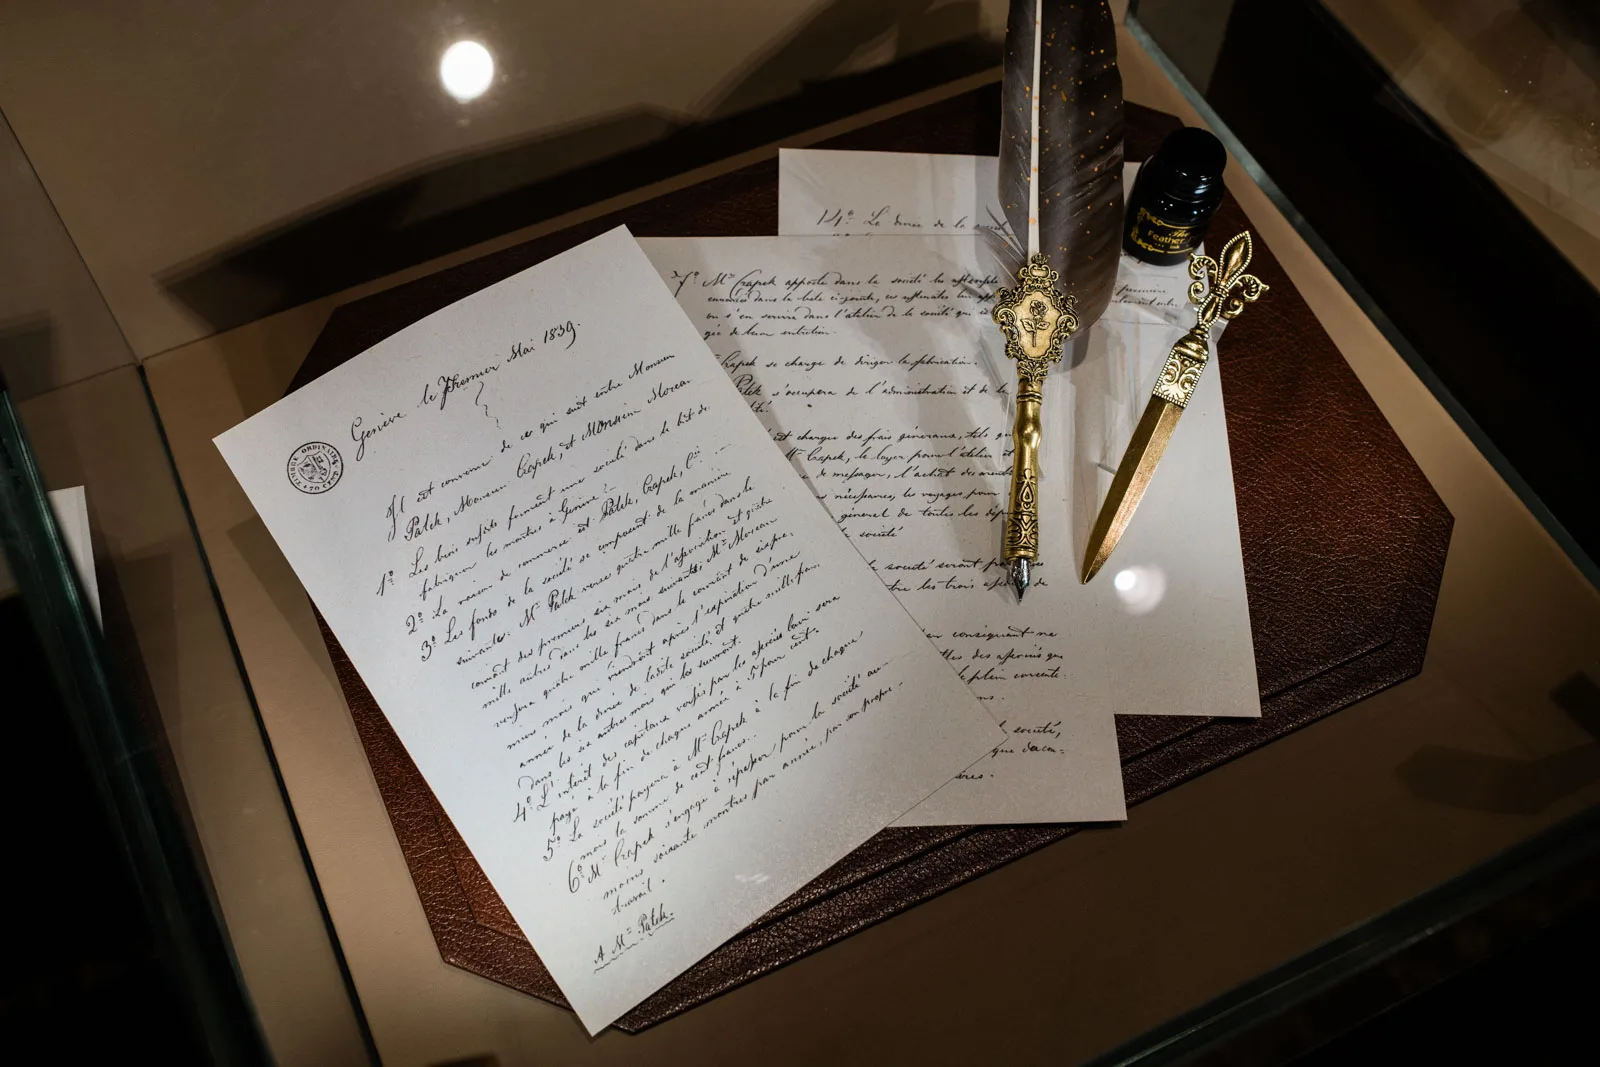 Genève le Premier Mai 1839.
TIMBRE ORDINAIRE
70 CENT
Il est convenu de ce qui suit entre Monsieur
Patek, Monsieur Czapek, et Monsieur Moreau
1º Les trois susdits forment une société dans le but de
fabriquer les montres à Genève.
2º La raison de commerce est Patek, Czapek, Cie
3º Les fonds de la société se composent de la manière
suivante. Mr Patek versera quatre mille francs dans le
courant des premiers six mois de l'association et quatre
mille autres dans les six mois suivants, Mr Moreau
versera quatre mille francs dans le courant de six pre-
miers mois qui viendront après l'expiration d'une
année de la durée de ladite société et quatre mille francs
dans les six autres mois qui les suivront.
4º L'intérêt des capitaux versés par les associés leur sera
payé à la fin de chaque année à 5 pour cent.
5º La société payera à Mr Czapek à la fin de chaque
mois la somme de cent francs.
6º Mr Czapek s'engage à repasser pour la société au
moins soixante montres par année, par son propre
travail.
A Mr Patek.
14º La durée de la
7º Mr Czapek apporte dans la société les
dans la liste ci-jointe, ces
on s'en servira dans l'atelier de la société qui
gée de leur entretien.
Czapek se charge de diriger la fabrication.
Patek s'occupera de l'administration et de la
est chargée des frais généraux, tels que
Mr Czapek, le loyer pour l'atelier et
de messager, l'achat des
nécessaires, les voyages, pour
général de toutes les
société
la société seront
les trois associés de
conséquent ne
des associés que
le plein
société,
que
première
The
Feather
Ink